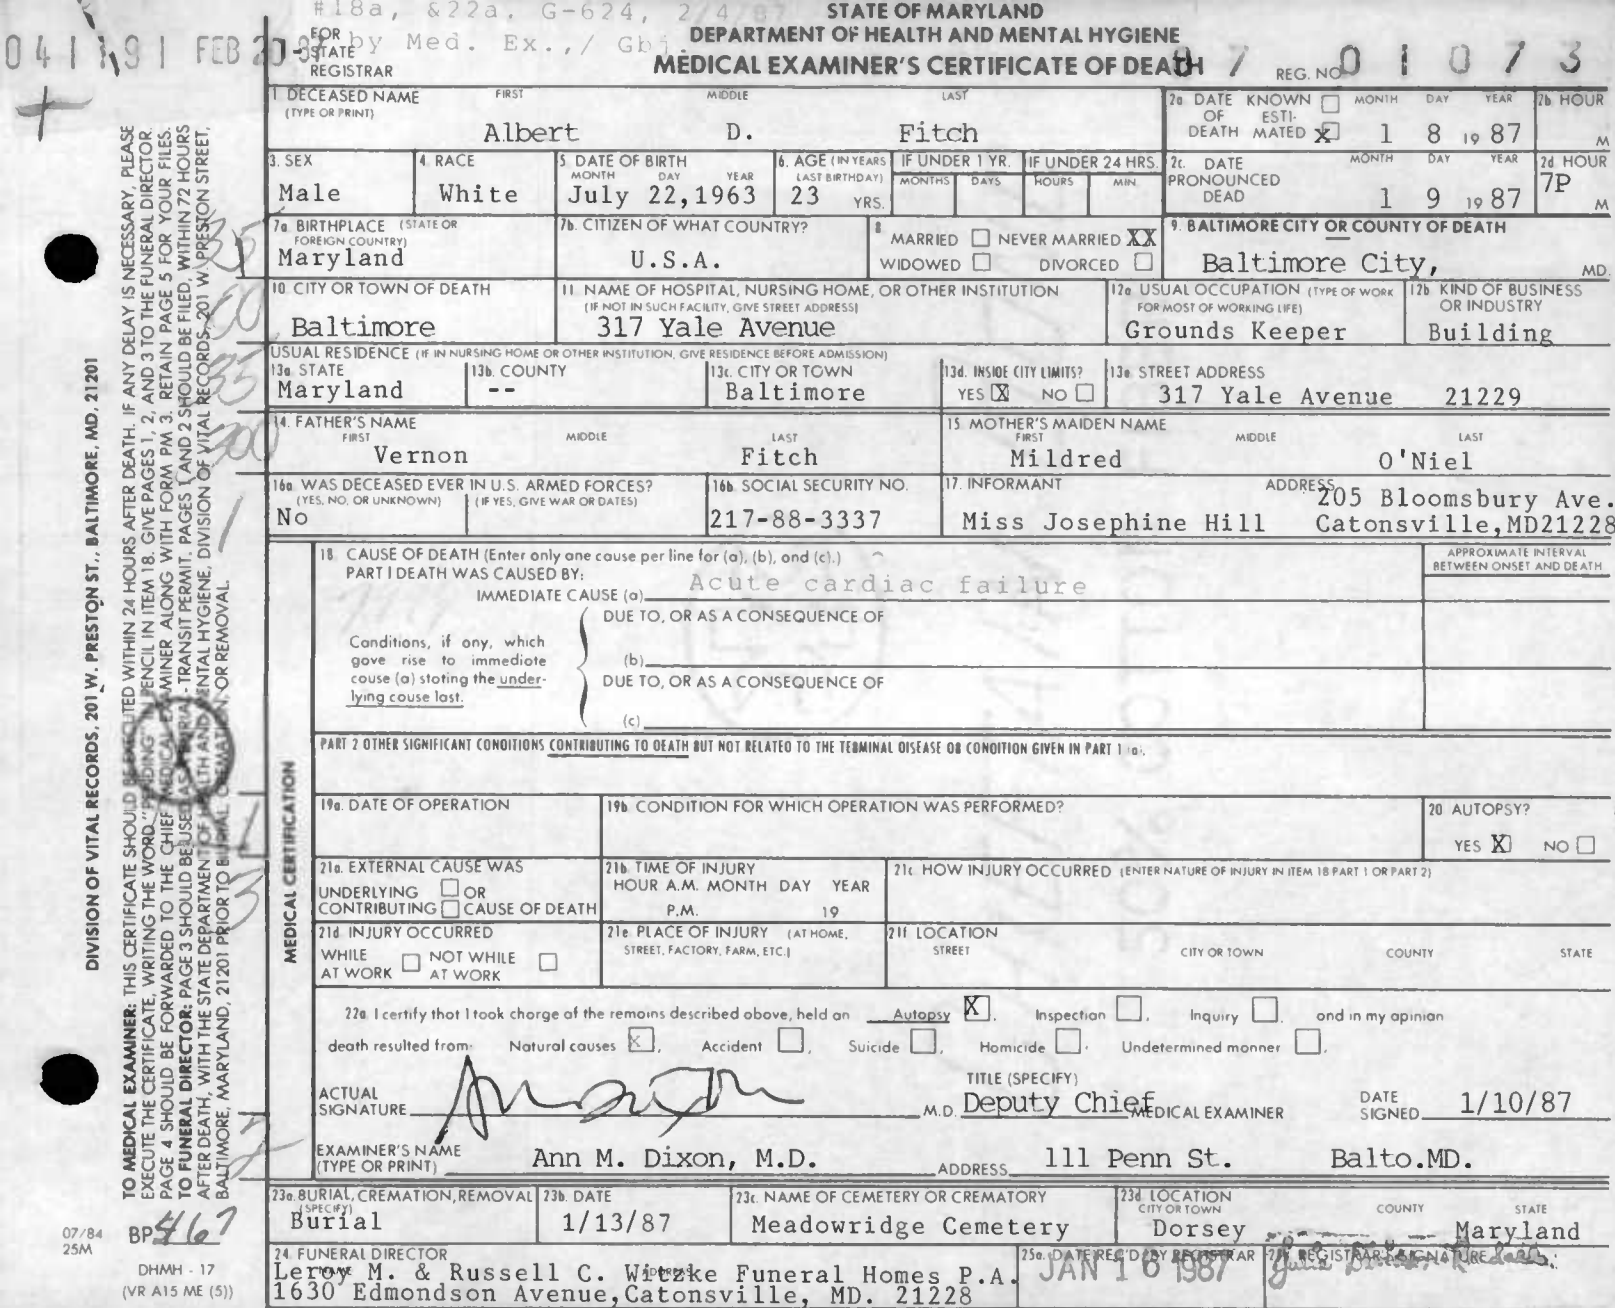 #18a, &22a, G-624, 2/4/87
by Med. Ex.,/ Gbj.
041191 FEB 20
FOR STATE REGISTRAR
STATE OF MARYLAND
DEPARTMENT OF HEALTH AND MENTAL HYGIENE
MEDICAL EXAMINER'S CERTIFICATE OF DEATH
87 REG. NO. 01073
1 DECEASED NAME (TYPE OR PRINT) FIRST MIDDLE LAST
Albert D. Fitch
2a DATE OF DEATH KNOWN ☐ ESTIMATED ☒ MONTH DAY YEAR
1 8 19 87
2b HOUR M
3. SEX
Male
4. RACE
White
5. DATE OF BIRTH MONTH DAY YEAR
July 22,1963
6. AGE (IN YEARS LAST BIRTHDAY)
23 YRS.
IF UNDER 1 YR. MONTHS DAYS
IF UNDER 24 HRS. HOURS MIN
2c. DATE PRONOUNCED DEAD MONTH DAY YEAR
1 9 19 87
2d HOUR
7P M
7a BIRTHPLACE (STATE OR FOREIGN COUNTRY)
Maryland
7b. CITIZEN OF WHAT COUNTRY?
U.S.A.
8 MARRIED ☐ NEVER MARRIED XX
WIDOWED ☐ DIVORCED ☐
9. BALTIMORE CITY OR COUNTY OF DEATH
Baltimore City, MD.
10 CITY OR TOWN OF DEATH
Baltimore
11. NAME OF HOSPITAL, NURSING HOME, OR OTHER INSTITUTION
(IF NOT IN SUCH FACILITY, GIVE STREET ADDRESS)
317 Yale Avenue
12a USUAL OCCUPATION (TYPE OF WORK FOR MOST OF WORKING LIFE)
Grounds Keeper
12b KIND OF BUSINESS OR INDUSTRY
Building
USUAL RESIDENCE (IF IN NURSING HOME OR OTHER INSTITUTION, GIVE RESIDENCE BEFORE ADMISSION)
13a STATE
Maryland
13b. COUNTY
--
13c. CITY OR TOWN
Baltimore
13d. INSIDE CITY LIMITS?
YES ☒ NO ☐
13e STREET ADDRESS
317 Yale Avenue 21229
14. FATHER'S NAME FIRST MIDDLE LAST
Vernon Fitch
15 MOTHER'S MAIDEN NAME FIRST MIDDLE LAST
Mildred O'Niel
16a WAS DECEASED EVER IN U.S. ARMED FORCES?
(YES, NO, OR UNKNOWN) (IF YES, GIVE WAR OR DATES)
No
16b SOCIAL SECURITY NO.
217-88-3337
17. INFORMANT ADDRESS
Miss Josephine Hill
205 Bloomsbury Ave.
Catonsville,MD21228
MEDICAL CERTIFICATION
18 CAUSE OF DEATH (Enter only one cause per line for (a), (b), and (c).)
PART I DEATH WAS CAUSED BY:
IMMEDIATE CAUSE (a) Acute cardiac failure
APPROXIMATE INTERVAL BETWEEN ONSET AND DEATH
DUE TO, OR AS A CONSEQUENCE OF
Conditions, if any, which gave rise to immediate cause (a) stating the underlying cause last.
(b)
DUE TO, OR AS A CONSEQUENCE OF
(c)
PART 2 OTHER SIGNIFICANT CONDITIONS CONTRIBUTING TO DEATH BUT NOT RELATED TO THE TERMINAL DISEASE OR CONDITION GIVEN IN PART 1 (a).
19a. DATE OF OPERATION
19b CONDITION FOR WHICH OPERATION WAS PERFORMED?
20 AUTOPSY?
YES ☒ NO ☐
21a. EXTERNAL CAUSE WAS
UNDERLYING ☐ OR
CONTRIBUTING ☐ CAUSE OF DEATH
21b TIME OF INJURY
HOUR A.M. MONTH DAY YEAR
P.M. 19
21c HOW INJURY OCCURRED (ENTER NATURE OF INJURY IN ITEM 18 PART 1 OR PART 2)
21d INJURY OCCURRED
WHILE AT WORK ☐ NOT WHILE AT WORK ☐
21e PLACE OF INJURY (AT HOME, STREET, FACTORY, FARM, ETC.)
21f LOCATION
STREET CITY OR TOWN COUNTY STATE
22a I certify that I took charge of the remains described above, held an Autopsy ☒, Inspection ☐, Inquiry ☐, and in my opinion
death resulted from: Natural causes ☒, Accident ☐, Suicide ☐, Homicide ☐, Undetermined manner ☐.
ACTUAL SIGNATURE M.D.
TITLE (SPECIFY)
Deputy Chief MEDICAL EXAMINER
DATE SIGNED 1/10/87
EXAMINER'S NAME (TYPE OR PRINT) Ann M. Dixon, M.D.
ADDRESS 111 Penn St. Balto.MD.
23a. BURIAL, CREMATION, REMOVAL (SPECIFY)
Burial
23b. DATE
1/13/87
23c. NAME OF CEMETERY OR CREMATORY
Meadowridge Cemetery
23d LOCATION CITY OR TOWN COUNTY STATE
Dorsey Maryland
24 FUNERAL DIRECTOR
Leroy M. & Russell C. Witzke Funeral Homes P.A.
1630 Edmondson Avenue,Catonsville, MD. 21228
25a. DATE REC'D BY REGISTRAR
JAN 16 1987
25b. REGISTRAR'S SIGNATURE
DIVISION OF VITAL RECORDS, 201 W. PRESTON ST., BALTIMORE, MD. 21201
TO MEDICAL EXAMINER: THIS CERTIFICATE SHOULD BE EXECUTED WITHIN 24 HOURS AFTER DEATH. IF ANY DELAY IS NECESSARY, PLEASE
EXECUTE THE CERTIFICATE, WRITING THE WORD "PENDING" IN PENCIL IN ITEM 18. GIVE PAGES 1, 2, AND 3 TO THE FUNERAL DIRECTOR.
PAGE 4 SHOULD BE FORWARDED TO THE CHIEF MEDICAL EXAMINER ALONG WITH FORM PM 3. RETAIN PAGE 5 FOR YOUR FILES.
TO FUNERAL DIRECTOR: PAGE 3 SHOULD BE USED AS BURIAL-TRANSIT PERMIT. PAGES 1 AND 2 SHOULD BE FILED, WITHIN 72 HOURS
AFTER DEATH, WITH THE STATE DEPARTMENT OF HEALTH AND MENTAL HYGIENE, DIVISION OF VITAL RECORDS, 201 W. PRESTON STREET,
BALTIMORE, MARYLAND, 21201 PRIOR TO BURIAL, CREMATION, OR REMOVAL.
07/84
25M
BP 467
DHMH - 17
(VR A15 ME (5))